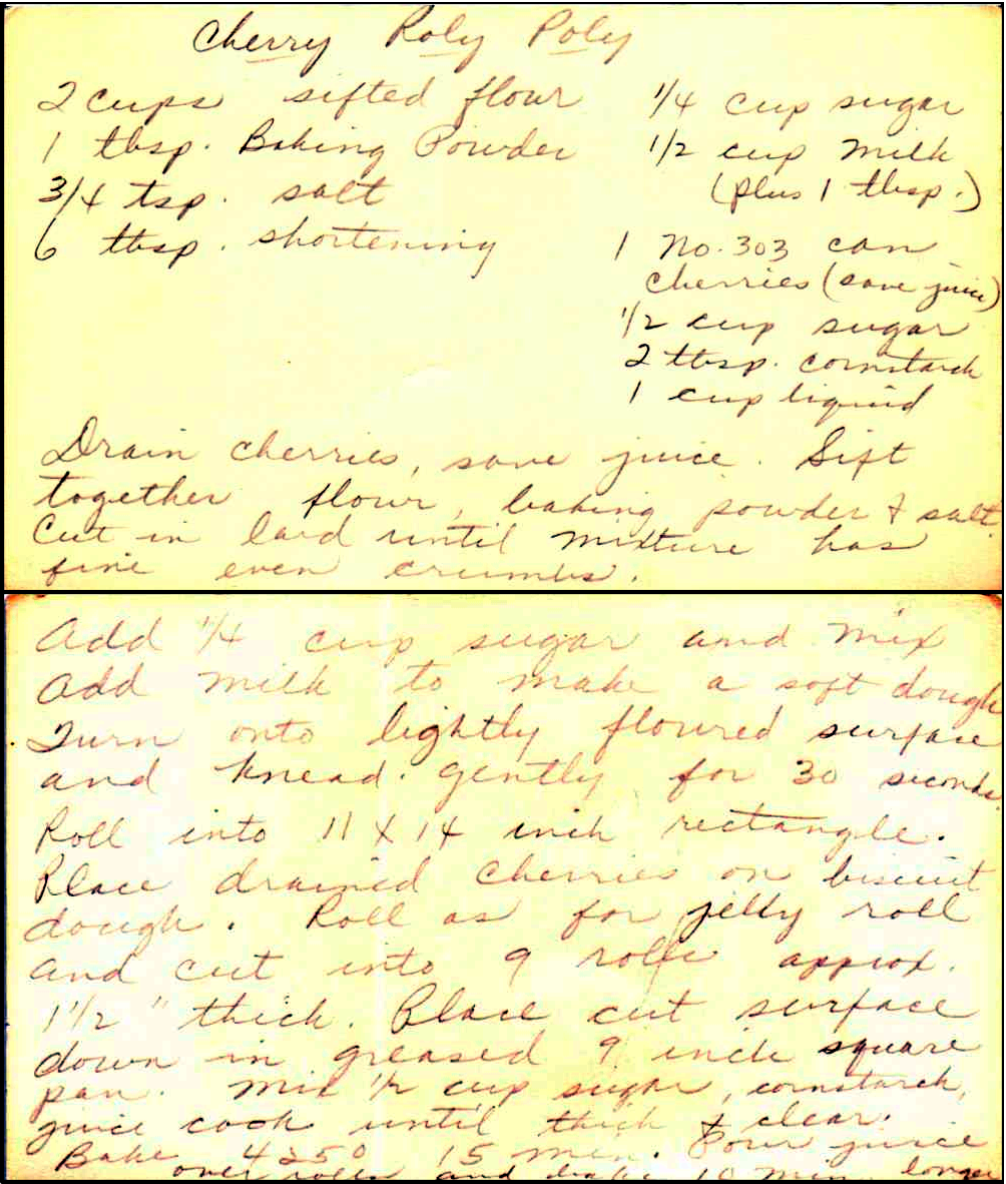 Cherry Roly Poly
2 cups sifted flour
1 tbsp. Baking Powder
3/4 tsp. salt
6 tbsp. shortening
1/4 cup sugar
1/2 cup milk
(plus 1 tbsp.)
1 No. 303 can
cherries (save juice)
1/2 cup sugar
2 tbsp. cornstarch
1 cup liquid
Drain cherries, save juice. Sift
together flour, baking powder & salt.
Cut in lard until mixture has
fine even crumbs.
Add 1/4 cup sugar and mix
Add milk to make a soft dough
Turn onto lightly floured surface
and knead gently for 30 seconds
Roll into 11 X 14 inch rectangle.
Place drained cherries on biscuit
dough. Roll as for jelly roll
and cut into 9 rolls approx.
1 1/2" thick. Place cut surface
down in greased 9 inch square
pan. Mix 1/2 cup sugar, cornstarch,
juice cook until thick & clear.
Bake 425° 15 min. Pour juice
over rolls and bake 10 min. longer